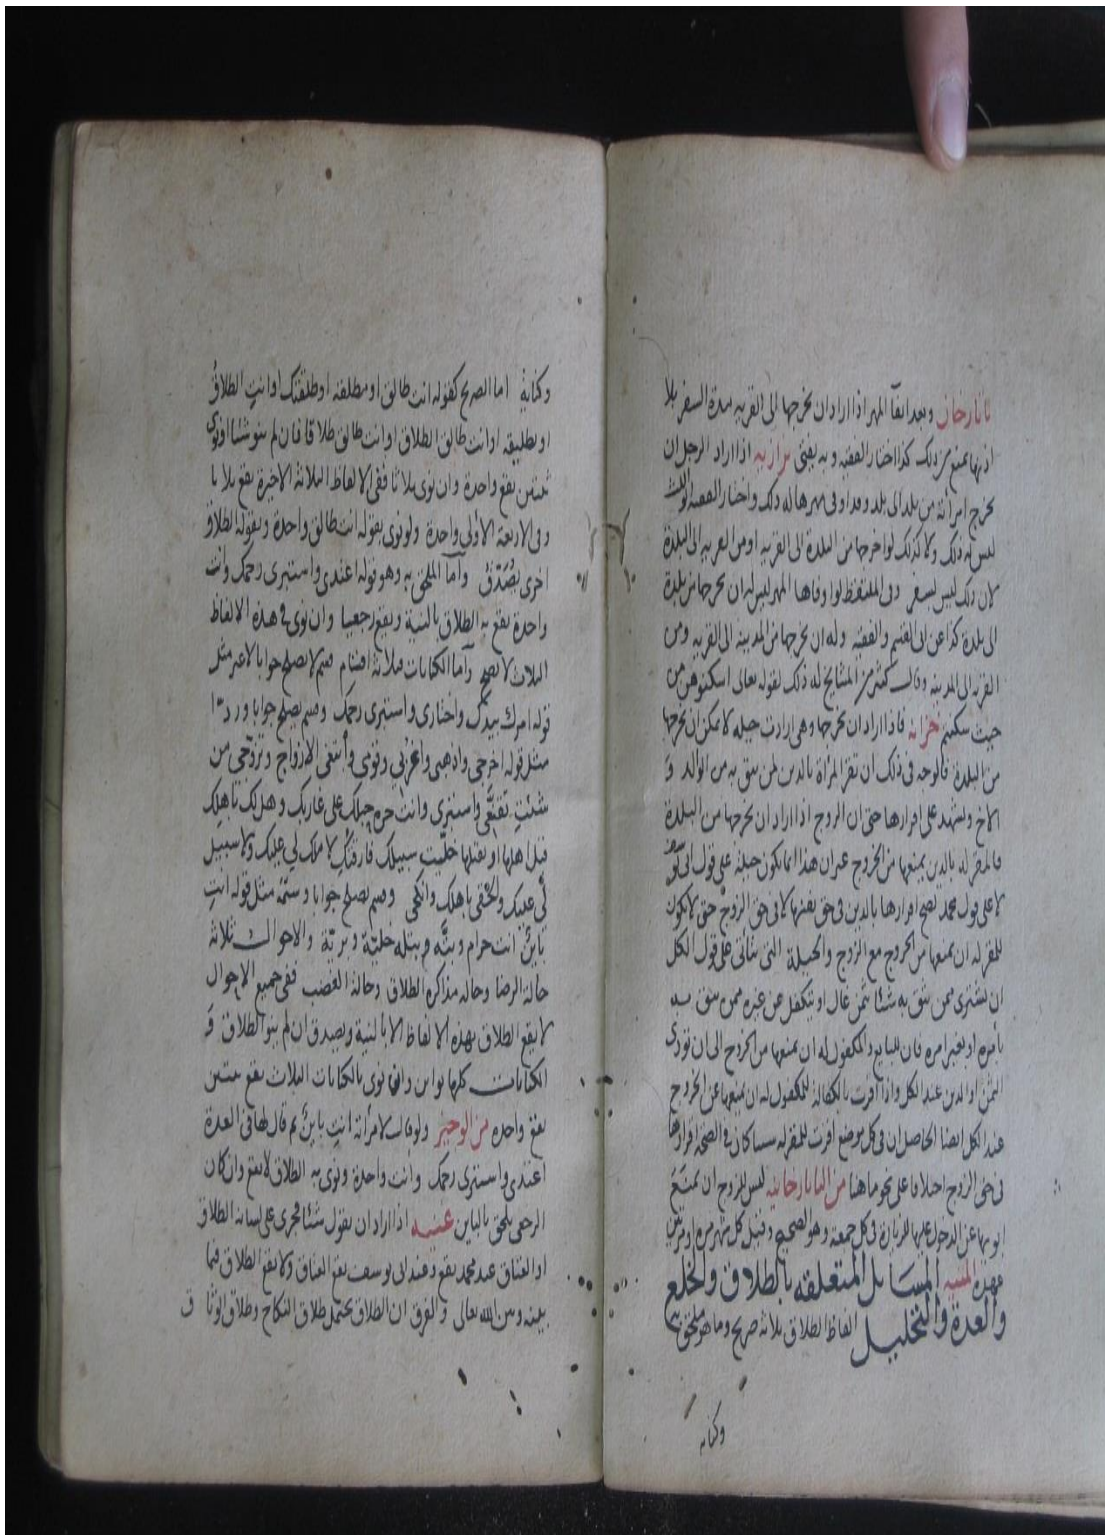 تاتارخان وبعد ايفآ المهر اذا اراد ان يخرجها الى القريه مدة السفر بلا
اذنها يمنع من ذلك كذا اختار الفقيه وبه يفتى بزازيه اذا اراد الرجل ان
يخرج امرأته من بلد الى بلد وقد اوفى مهرها له ذلك واختار الفقيه ابو الليث
ليس له ذلك ولا كذلك لو اخرجها من البلدة الى القريه او من القريه الى البلدة
لان ذلك ليس بسفر وفى الملتقط لو اوفاها المهر ليس له ان يخرجها من بلدة
الى بلدة كذا عن ابى القسم والفقيه وله ان يخرجها من المدينه الى القريه ومن
القريه الى المدينه وقال كثير من المشايخ له ذلك لقوله تعالى اسكنوهن من
حيث سكنتم خزانه فاذا اراد ان يخرجها وهى ارادت حيله لا يمكن ان يخرجها
من البلدة فالوجه فى ذلك ان تقر المرأة بالدين لمن تثق به من الوالد و
الاخ وتشهد على اقرارها حتى ان الزوج اذا اراد ان يخرجها من البلدة
فالمقر له بالدين يمنعها من الخروج غير ان هذا انما يكون حيلة على قول ابى
لا على قول محمد يصح اقرارها بالدين فى حق نفسها لا فى حق الزوج حتى لا يكون
للمقر له ان يمنعها من الخروج مع الزوج والحيلة التى تتأتى على قول الكل
ان تشترى ممن تثق به شئا بثمن غال او تتكفل عن غيره ممن تثق به
بأمره او بغير امره فان للبايع والمكفول له ان يمنعها من الخروج الى ان تودى
الثمن او الدين عند الكل واذا اقرت بالكفالة للمكفول له ان يمنعها عن الخروج
عند الكل ايضا الحاصل ان فى كل موضع اقرت للمقر له سببا كان فى الصحة اقرارها
فى حق الزوج اختلافا على نحو ما هنا من التاتارخانيه ليس للزوج ان يمنع
ابويها عن الدخول عليها للزيارة فى كل جمعه وهو الصحيح وقيل كل شهر مره او مرتين
المنيه المسائل المتعلقه بالطلاق والخلع
والعدة والتحليل الفاظ الطلاق ثلاثه صريح وما هو ملحق به
وكنايه
وكنايةٍ اما الصريح كقوله انت طالق او مطلقه او طلقتك او انتِ الطلاقُ
او تطليقه او انت طالق الطلاق او انت طالق طلاقا فان لم ينو شئا او نوى
ثنتين يقع واحدة وان نوى ثلاثا ففى الالفاظ الثلاثة الاخيرة يقع ثلاثا
وفى الاربعة الاولى واحدة ولو نوى بقوله انت طالق واحدة وبقوله الطلاق
اخرى يُصَدَّقُ وأما الملحق به وهو قوله اعتدى واستبرى رحمك وانت
واحدة يقع به الطلاق بالنية ويقع رجعيا وان نوى فى هذه الالفاظ
الثلاث لا يصح وأما الكنايات فثلاثة اقسام قسم لا يصلح جوابا لا غير مثل
قوله امرك بيدك واختارى واستبرى رحمك وقسم يصلح جوابا وردًّا
مثل قوله اخرجى واذهبى واعزبى وقومى وابتغى الازواج وتزوجى من
شئتِ تقنّعى واستترى وانت حره حبلك على غاربك وهبتك لاهلك
قبل اهلها او لم يقبلها خليت سبيلك فارقتكِ لا ملك لي عليك ولا سبيل
لى عليك والحقى باهلك وانكحى وقسم يصلح جوابا وشتمة مثل قوله انتِ
باينٌ انت حرام وبتّه وبتله خليّة وبريّة والاحوال ثلاثة
حالة الرضا وحالة مذاكره الطلاق وحالة الغضب ففى جميع الاحوال
لا يقع الطلاق بهذه الالفاظ الا بالنية ويصدق ان لم ينو الطلاق و
الكنايات كلها بواين وان نوى بالكنايات الثلاث يقع ثنتين
يقع واحده من الوجيز ولو قال لامرأته انت باينٌ ثم قال لها فى العدة
اعتدى واستبرى رحمك وانت واحدة ونوى به الطلاق لا يقع وان كان
الرجعى يلحق بالباين غنيه اذا اراد ان يقول شئا فجرى على لسانه الطلاق
او العتاق عند محمد يقع وعند ابى يوسف يقع العتاق ولا يقع الطلاق فيما
بينه وبين الله تعالى والفرق ان الطلاق يحتمل طلاق النكاح وطلاق الوثاق